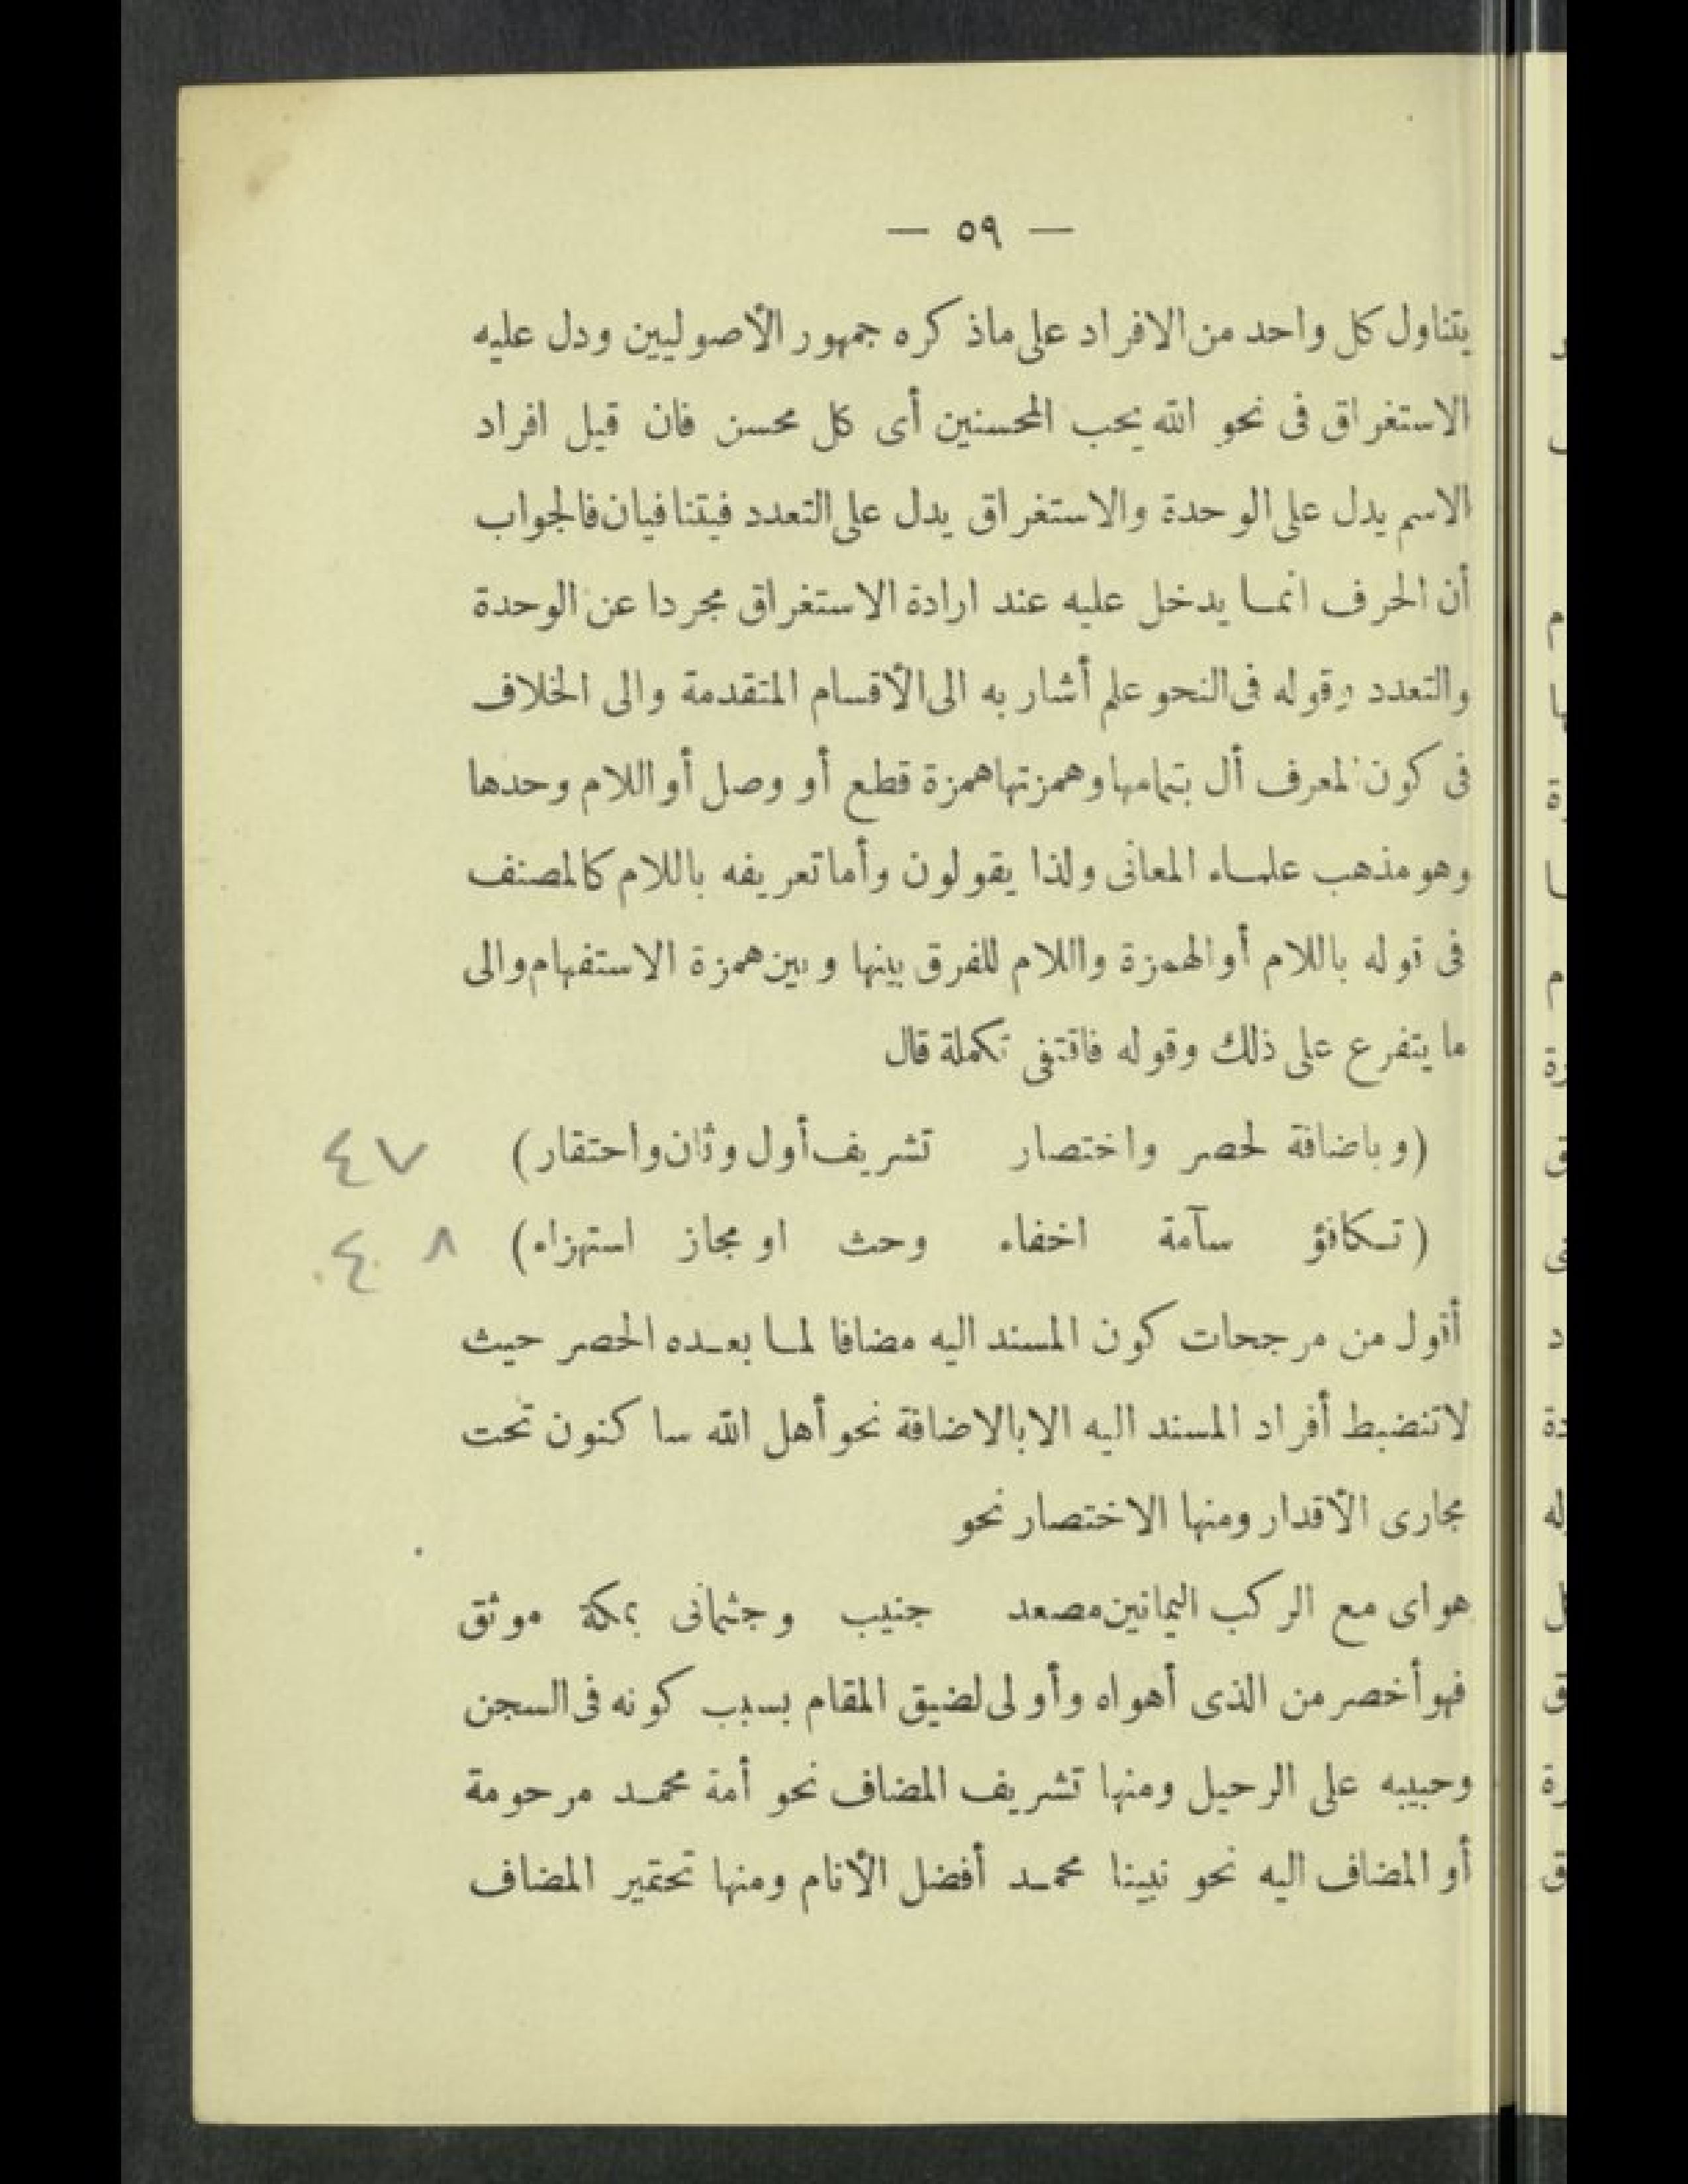 — ٥٩ —
يتناول كل واحد من الافراد على ماذكره جمهور الأصوليين ودل عليه
الاستغراق فى نحو الله يحب المحسنين أى كل محسن فان قيل افراد
الاسم يدل على الوحدة والاستغراق يدل على التعدد فيتنافيان فالجواب
أن الحرف انما يدخل عليه عند ارادة الاستغراق مجردا عن الوحدة
والتعدد وقوله فى النحو علم أشار به الى الأقسام المتقدمة والى الخلاف
فى كون المعرف أل بتمامها وهمزتها همزة قطع أو وصل أو اللام وحدها
وهو مذهب علماء المعانى ولذا يقولون وأما تعريفه باللام كالمصنف
فى قوله باللام أو الهمزة واللام للفرق بينها وبين همزة الاستفهام والى
ما يتفرع على ذلك وقوله فاقتفى تكملة قال
(وباضافة لحصر واختصار تشريف أول وثان واحتقار) ٤٧
(تكافؤ سآمة اخفاء وحث او مجاز استهزاء) ٤٨
أقول من مرجحات كون المسند اليه مضافا لما بعده الحصر حيث
لا تنضبط أفراد المسند اليه الا بالاضافة نحو أهل الله ساكنون تحت
مجارى الأقدار ومنها الاختصار نحو
هواى مع الركب اليمانين مصعد جنيب وجثمانى بمكة موثق
فهو أخصر من الذى أهواه وأولى لضيق المقام بسبب كونه فى السجن
وحبيبه على الرحيل ومنها تشريف المضاف نحو أمة محمد مرحومة
أو المضاف اليه نحو نبينا محمد أفضل الأنام ومنها تحقير المضاف